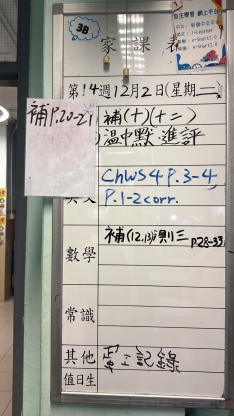 3B
家課表
自主學習 網上平台
第14週12月2日(星期二)
補P.20-21
補(十)(十二)
溫中默.進評
Chws 4 P.3-4
P.1-2 corr.
數學
補(12,13)測三 P.28-33
常識
其他
記錄
值日生